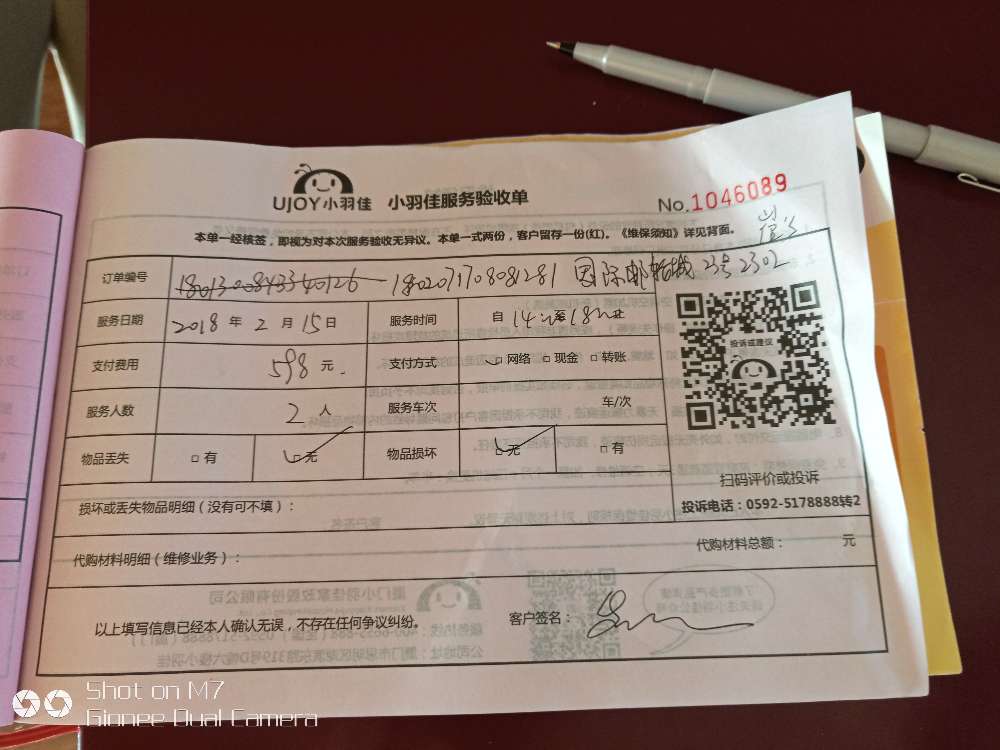 UJOY小羽佳 小羽佳服务验收单
No.1046089
本单一经核签，即视为对本次服务验收无异议。本单一式两份，客户留存一份(红)。《维保须知》详见背面。
订单编号 18020171708081281 国际邮轮城 23号2302
服务日期 2018年2月15日 服务时间 自14:至18:止
支付费用 598元. 支付方式 □网络 □现金 □转账
服务人数 2人 服务车次 车/次
物品丢失 □有 □无 物品损坏 □无 □有
投诉或建议
扫码评价或投诉
投诉电话：0592-5178888转2
损坏或丢失物品明细（没有可不填）：
代购材料明细（维修业务）： 代购材料总额： 元
以上填写信息已经本人确认无误，不存在任何争议纠纷。 客户签名：
Shot on M7
Gionee Dual Camera